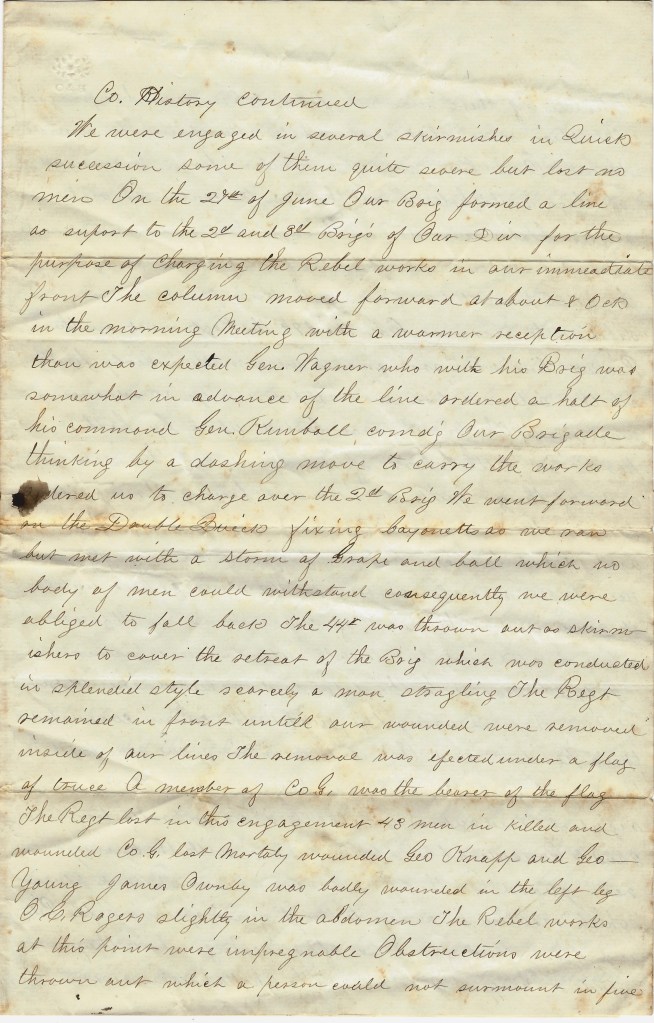 Co. History continued
We were engaged in several skirmishes in Quick
succession some of them quite severe but lost no
men On the 27th of June Our Brig formed a line
as suport to the 2d and 3d Brigs of Our Div for the
purpose of Charging the Rebel works in our immeadiate
front The column moved forward at about 8 Ock
in the morning Meeting with a warmer reception
than was expected Gen. Wagner who with his Brig was
somewhat in advance of the line ordered a halt of
his command Gen. Kimball comd'g Our Brigade
thinking by a dashing move to carry the works
dered us to charge over the 2d Brig We went forward
on the Double Quick fixing bayonetts as we ran
but met with a storm of Grape and ball which no
body of men could withstand consequently we were
obliged to fall back The 44th was thrown out as skirm-
ishers to cover the retreat of the Brig which was conducted
in splendid style scarcely a man stragling The Regt
remained in front untill our wounded were removed
inside of our lines The removal was efected under a flag
of truce A member of Co G. was the bearer of the flag
The Regt lost in this engagement 43 men in killed and
wounded Co. G. lost Mortaly wounded Geo Knapp and Geo
Young James Ownby was badly wounded in the left leg
O C. Rogers slightly in the abdomen The Rebel works
at this point were impregnable Obstructions were
thrown out which a person could not surmount in five